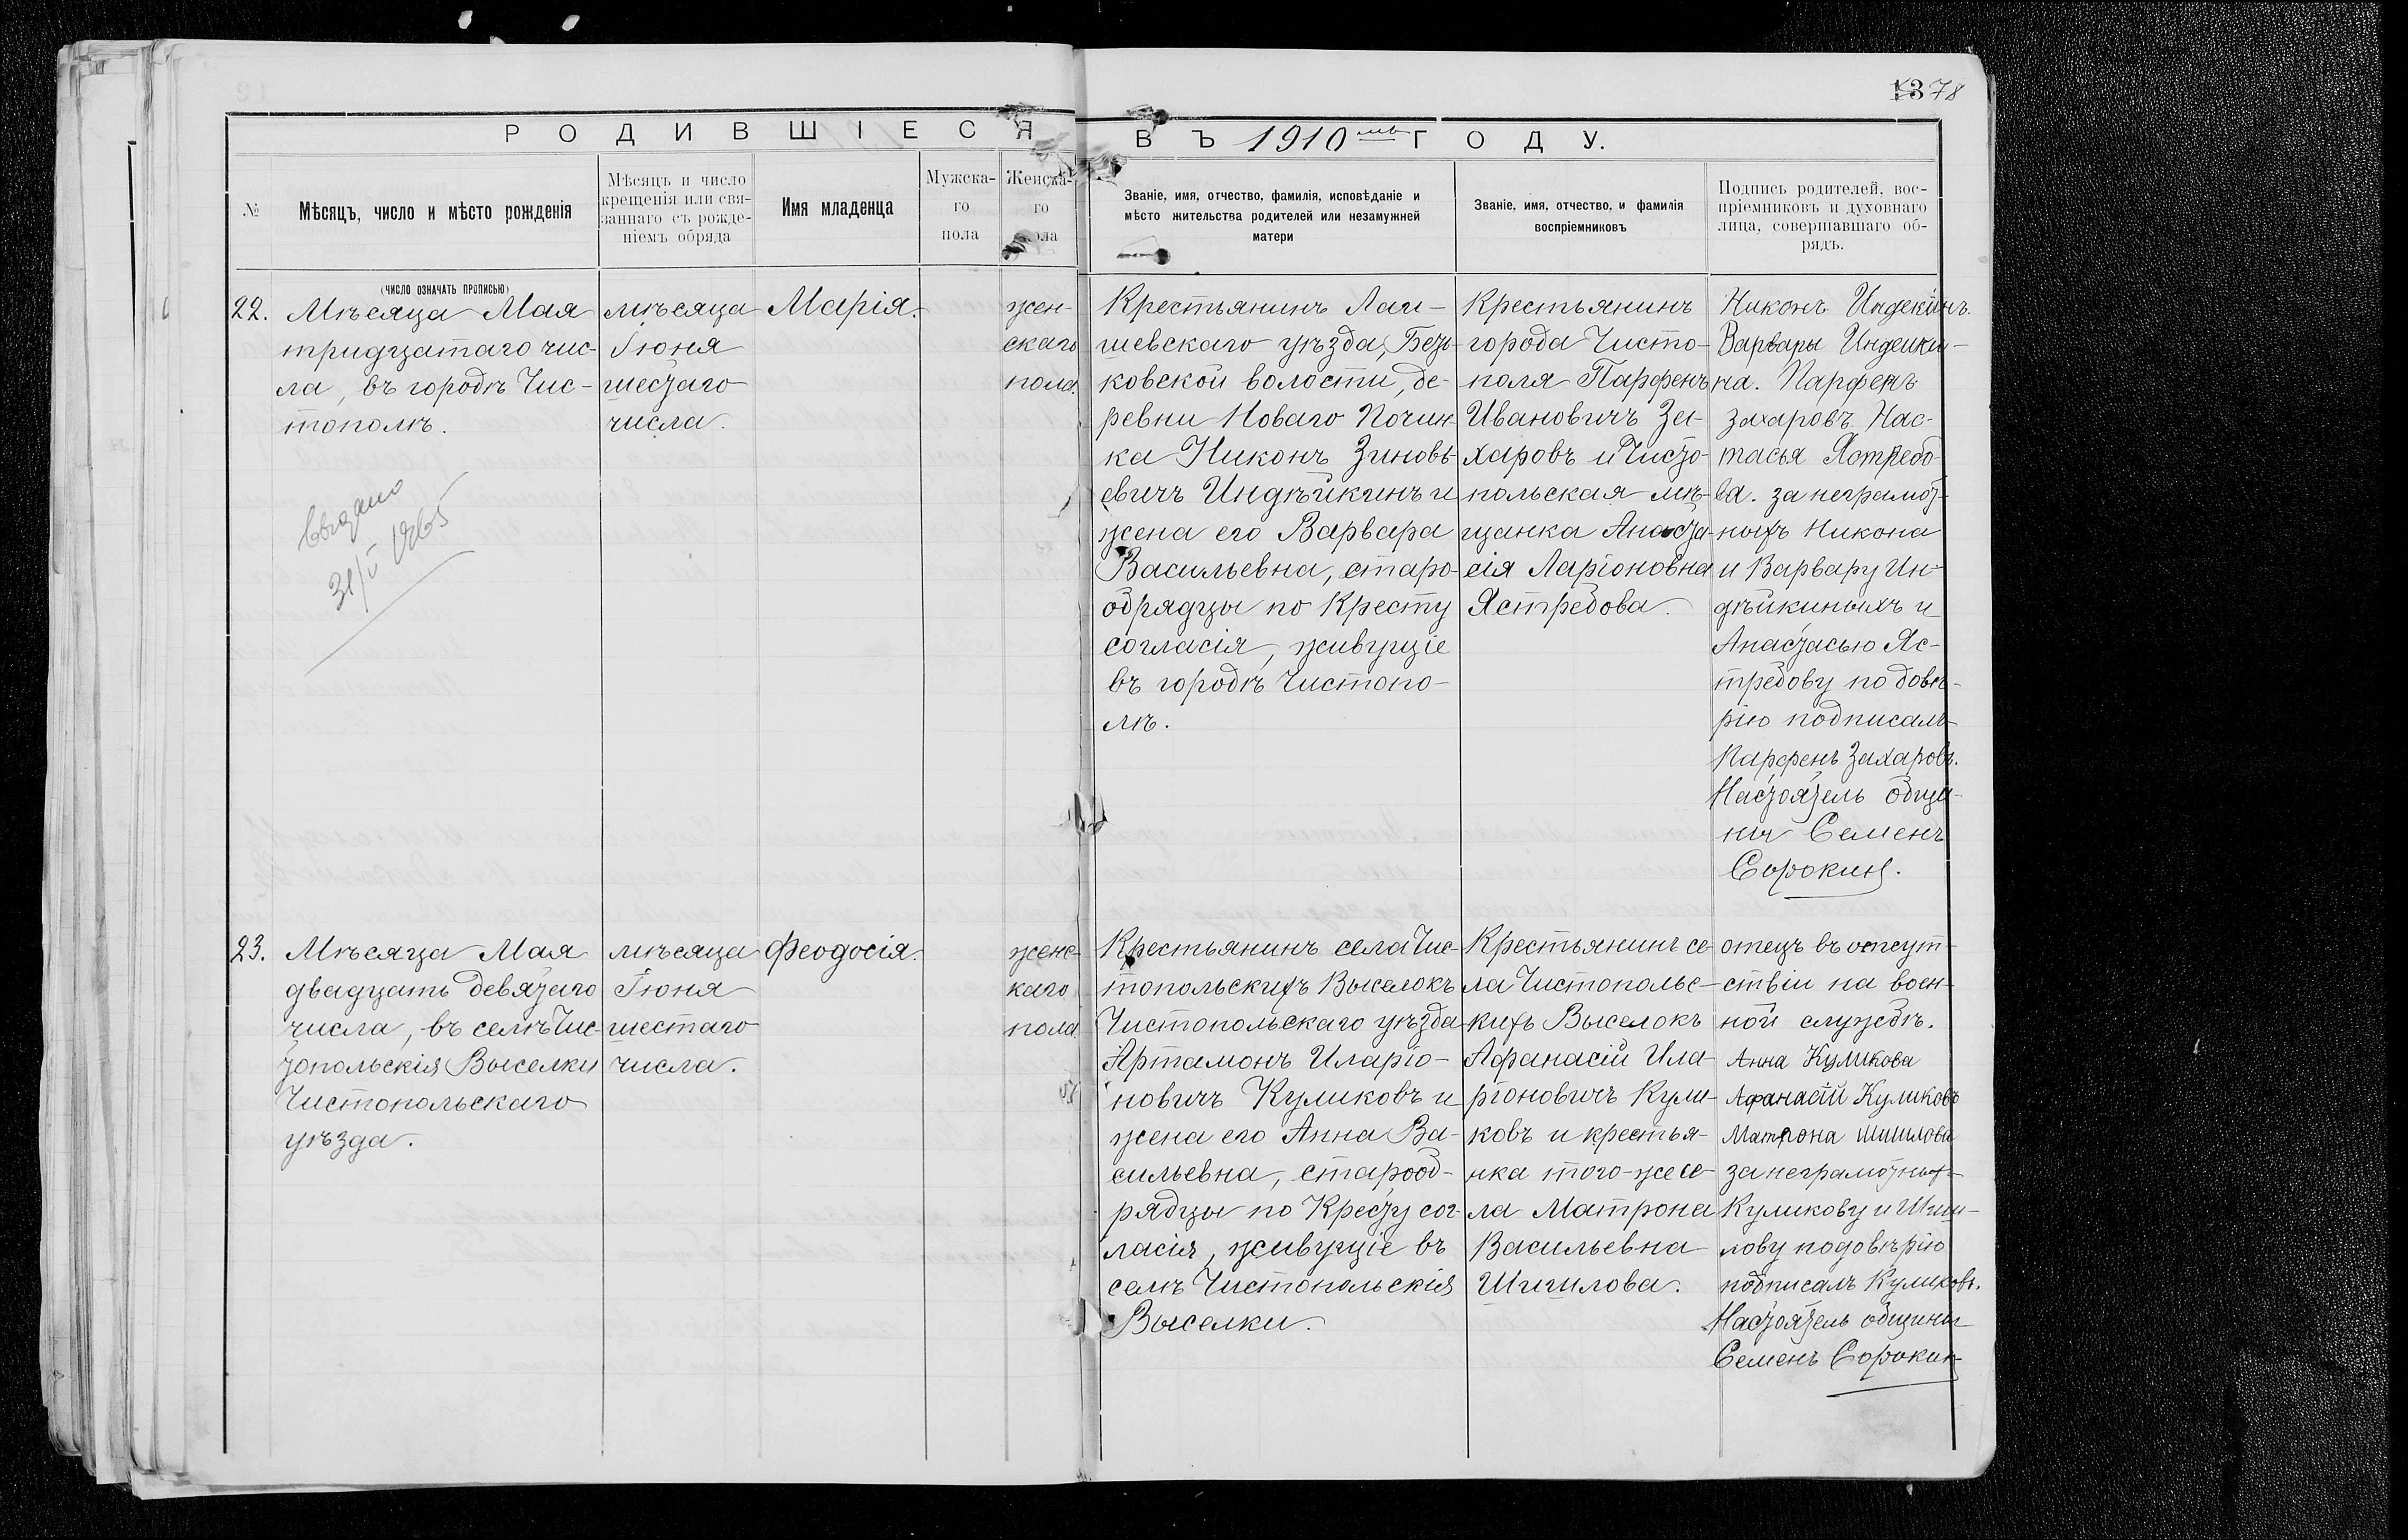 1378
РОДИВШІЕСЯ ВЪ 1910мъ ГОДУ.
№
Мѣсяцъ, число и мѣсто рожденія
Мѣсяцъ и число
крещенія или свя-
заннаго съ рожде-
ніемъ обряда
Имя младенца
Мужска-
го
пола
Женска-
го
пола
Званіе, имя, отчество, фамилія, исповѣданіе и
мѣсто жительства родителей или незамужней
матери
Званіе, имя, отчество, и фамилія
воспріемниковъ
Подпись родителей, вос-
пріемниковъ и духовнаго
лица, совершавшаго об-
рядъ.
(ЧИСЛО ОЗНАЧАТЬ ПРОПИСЬЮ)
22.
Мѣсяца Мая
тридцатаго чис-
ла, въ городѣ Чис-
тополѣ.
выдано
31/V 1965
мѣсяца
Іюня
шестаго
числа.
Марія.
жен-
скаго
пола.
Крестьянинъ Лаи-
шевскаго уѣзда, Безъ-
ковской волости, де-
ревни Новаго Почин-
ка Никонъ Зиновь-
евичъ Индѣйкинъ и
жена его Варвара
Васильевна, старо-
обрядцы по Кресту
согласія, живущіе
въ городѣ Чистопо-
лѣ.
Крестьянинъ
города Чисто-
поля Парфенъ
Ивановичъ За-
харовъ и Чисто-
польская мѣ-
щанка Анаста-
сія Ларіоновна
Ястребова.
Никонъ Индекинъ.
Варвары Индейки-
на. Парфенъ
Захаровъ Нас-
тасья Ястребо-
ва. за неграмот-
ныхъ Никона
и Варвару Ин-
дѣйкиныхъ и
Анастасью Яс-
требову по довѣ-
рію подписалъ
Парфенъ Захаровъ.
Настоятель общи-
ны Семенъ
Сорокинъ.
23.
Мѣсяца Мая
двадцать девятаго
числа, въ селѣ Чис-
топольскія Выселки
Чистопольскаго
уѣзда.
мѣсяца
Іюня
шестаго
числа.
Феодосія.
женс-
каго
пола.
Крестьянинъ села Чис-
топольскихъ Выселокъ
Чистопольскаго уѣзда
Артамонъ Иларіо-
новичъ Куликовъ и
жена его Анна Ва-
сильевна, старооб-
рядцы по Кресту сог-
ласія, живущіе въ
селѣ Чистопольскія
Выселки.
Крестьянинъ се-
ла Чистопольс-
кихъ Выселокъ
Афанасій Ила-
ріоновичъ Кули-
ковъ и крестья-
нка того-же се-
ла Матрона
Васильевна
Шишлова.
отецъ въ отсут-
ствіи на воен-
ной службѣ.
Анна Куликова
Афанасій Куликовъ
Матрона Шишлова
за неграмотных-
Куликову и Шиш-
лову по довѣрію
подписалъ Куликовъ.
Настоятель общины
Семенъ Сорокин